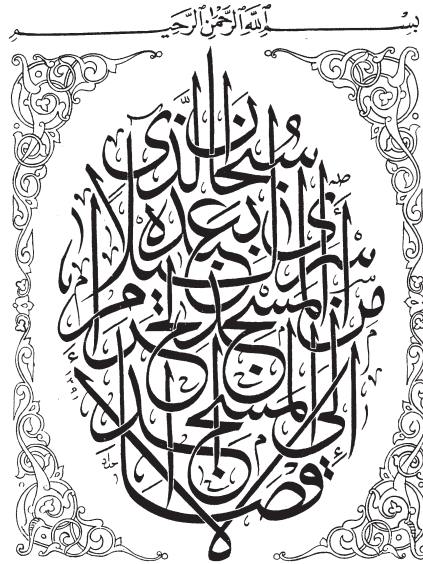 بسم الله الرحمن الرحيم
سبحان الذي
أسرى بعبده ليلا
من المسجد الحرام
إلى المسجد الأقصا